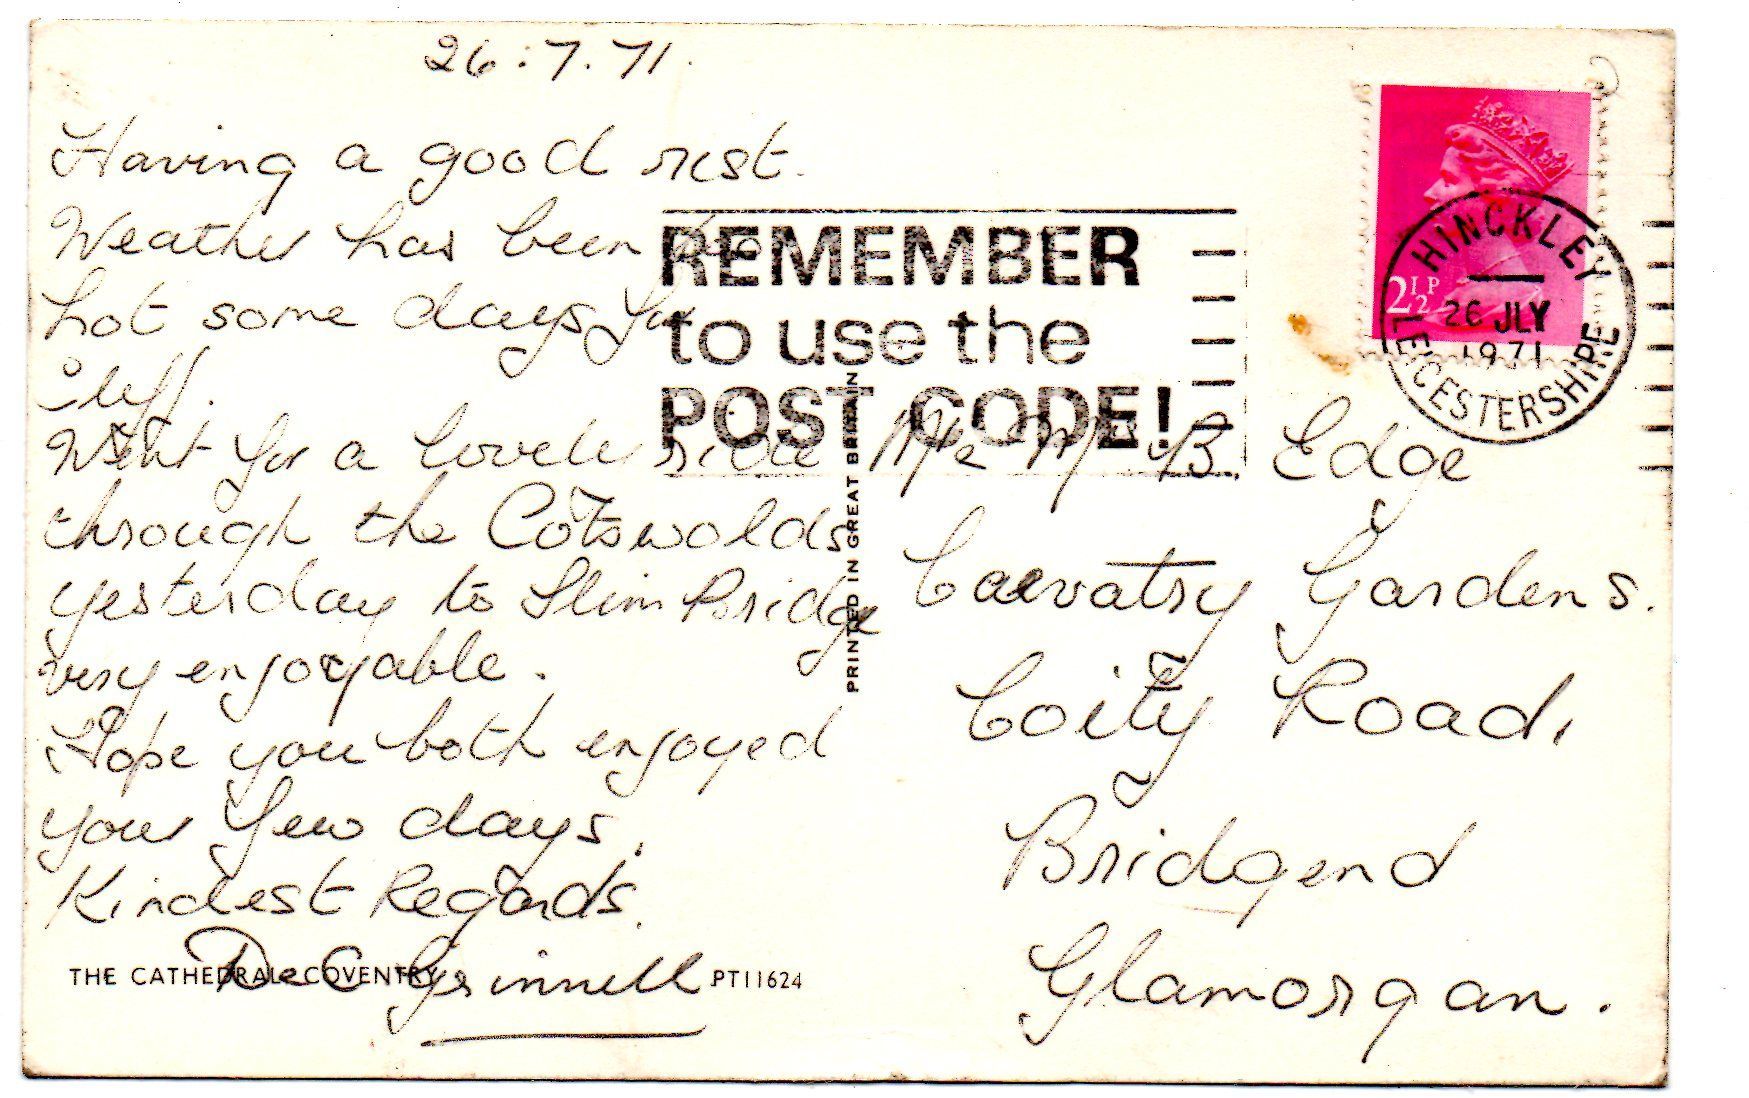 26.7.71.
Having a good rest.
Weather has been
hot some days for
itself.
Went for a lovely ride
through the Cotswolds
yesterday to Slim Bridge
very enjoyable.
Hope you both enjoyed
your few days.
Kindest Regards.
Grinnell
THE CATHEDRAL, COVENTRY
PT11624
PRINTED IN GREAT BRITAIN
REMEMBER
to use the
POST CODE!
2½P
HINCKLEY
26 JLY
1971
LEICESTERSHIRE
B. Edge
Gardens.
Coity Road,
Bridgend
Glamorgan.